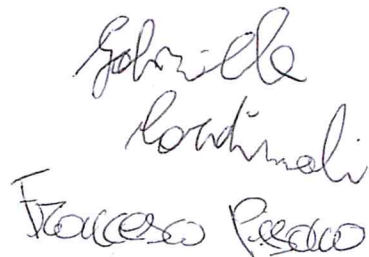 Gabriella
Cardinali
Francesco Pisano